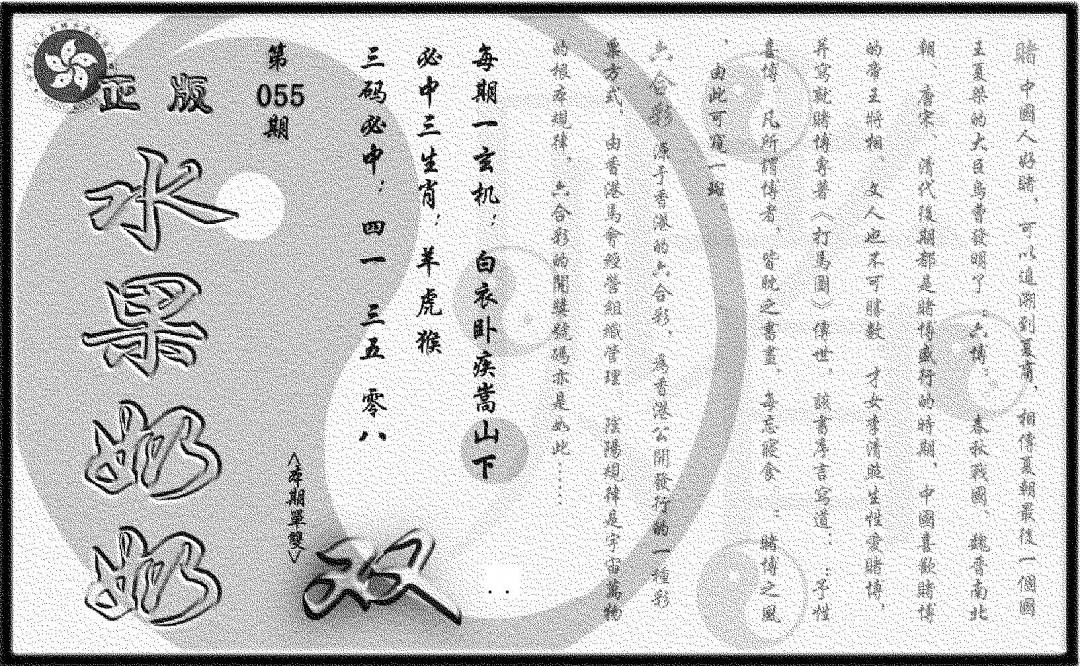 賭中國人好賭，可以追溯到夏商，相傳夏朝最後一個國
王夏桀的大臣烏曹發明了：六博。 春秋戰國、魏晉南北
朝、唐宋、清代後期都是賭博盛行的時期，中國喜歡賭博
的帝王將相、文人也不可勝數 才女李清照生性愛賭博，
并寫就賭博專著《打馬圖》傳世，該書序言寫道：：予性
喜博，凡所謂博者，皆耽之晝夜，每忘寢食 ：賭博之風
，由此可窺一斑。
六合彩 源于香港的六合彩，為香港公開發行的一種彩
票方式，由香港馬會經營組織管理 陰陽規律是宇宙萬物
的根本規律，六合彩的開獎號碼亦是如此……
每期一玄机：白衣卧疾嵩山下
必中三生肖：羊虎猴
三码必中：四一 三五 零八
第
055
期
<本期單雙>
双
正版
水果奶奶